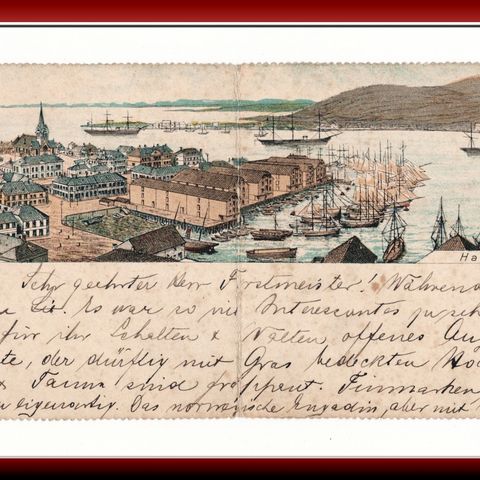 Ha
Sehr geehrter Herr Forstmeister! Während
Es war so viel Interessantes zu
für ihr Schalten & Walten offenes Aug
te, der dürftig mit Gras bedeckten Hoc
& Fauna sind frappant. Finmarken
eigenartig. Das norwegische Engadin, aber mit